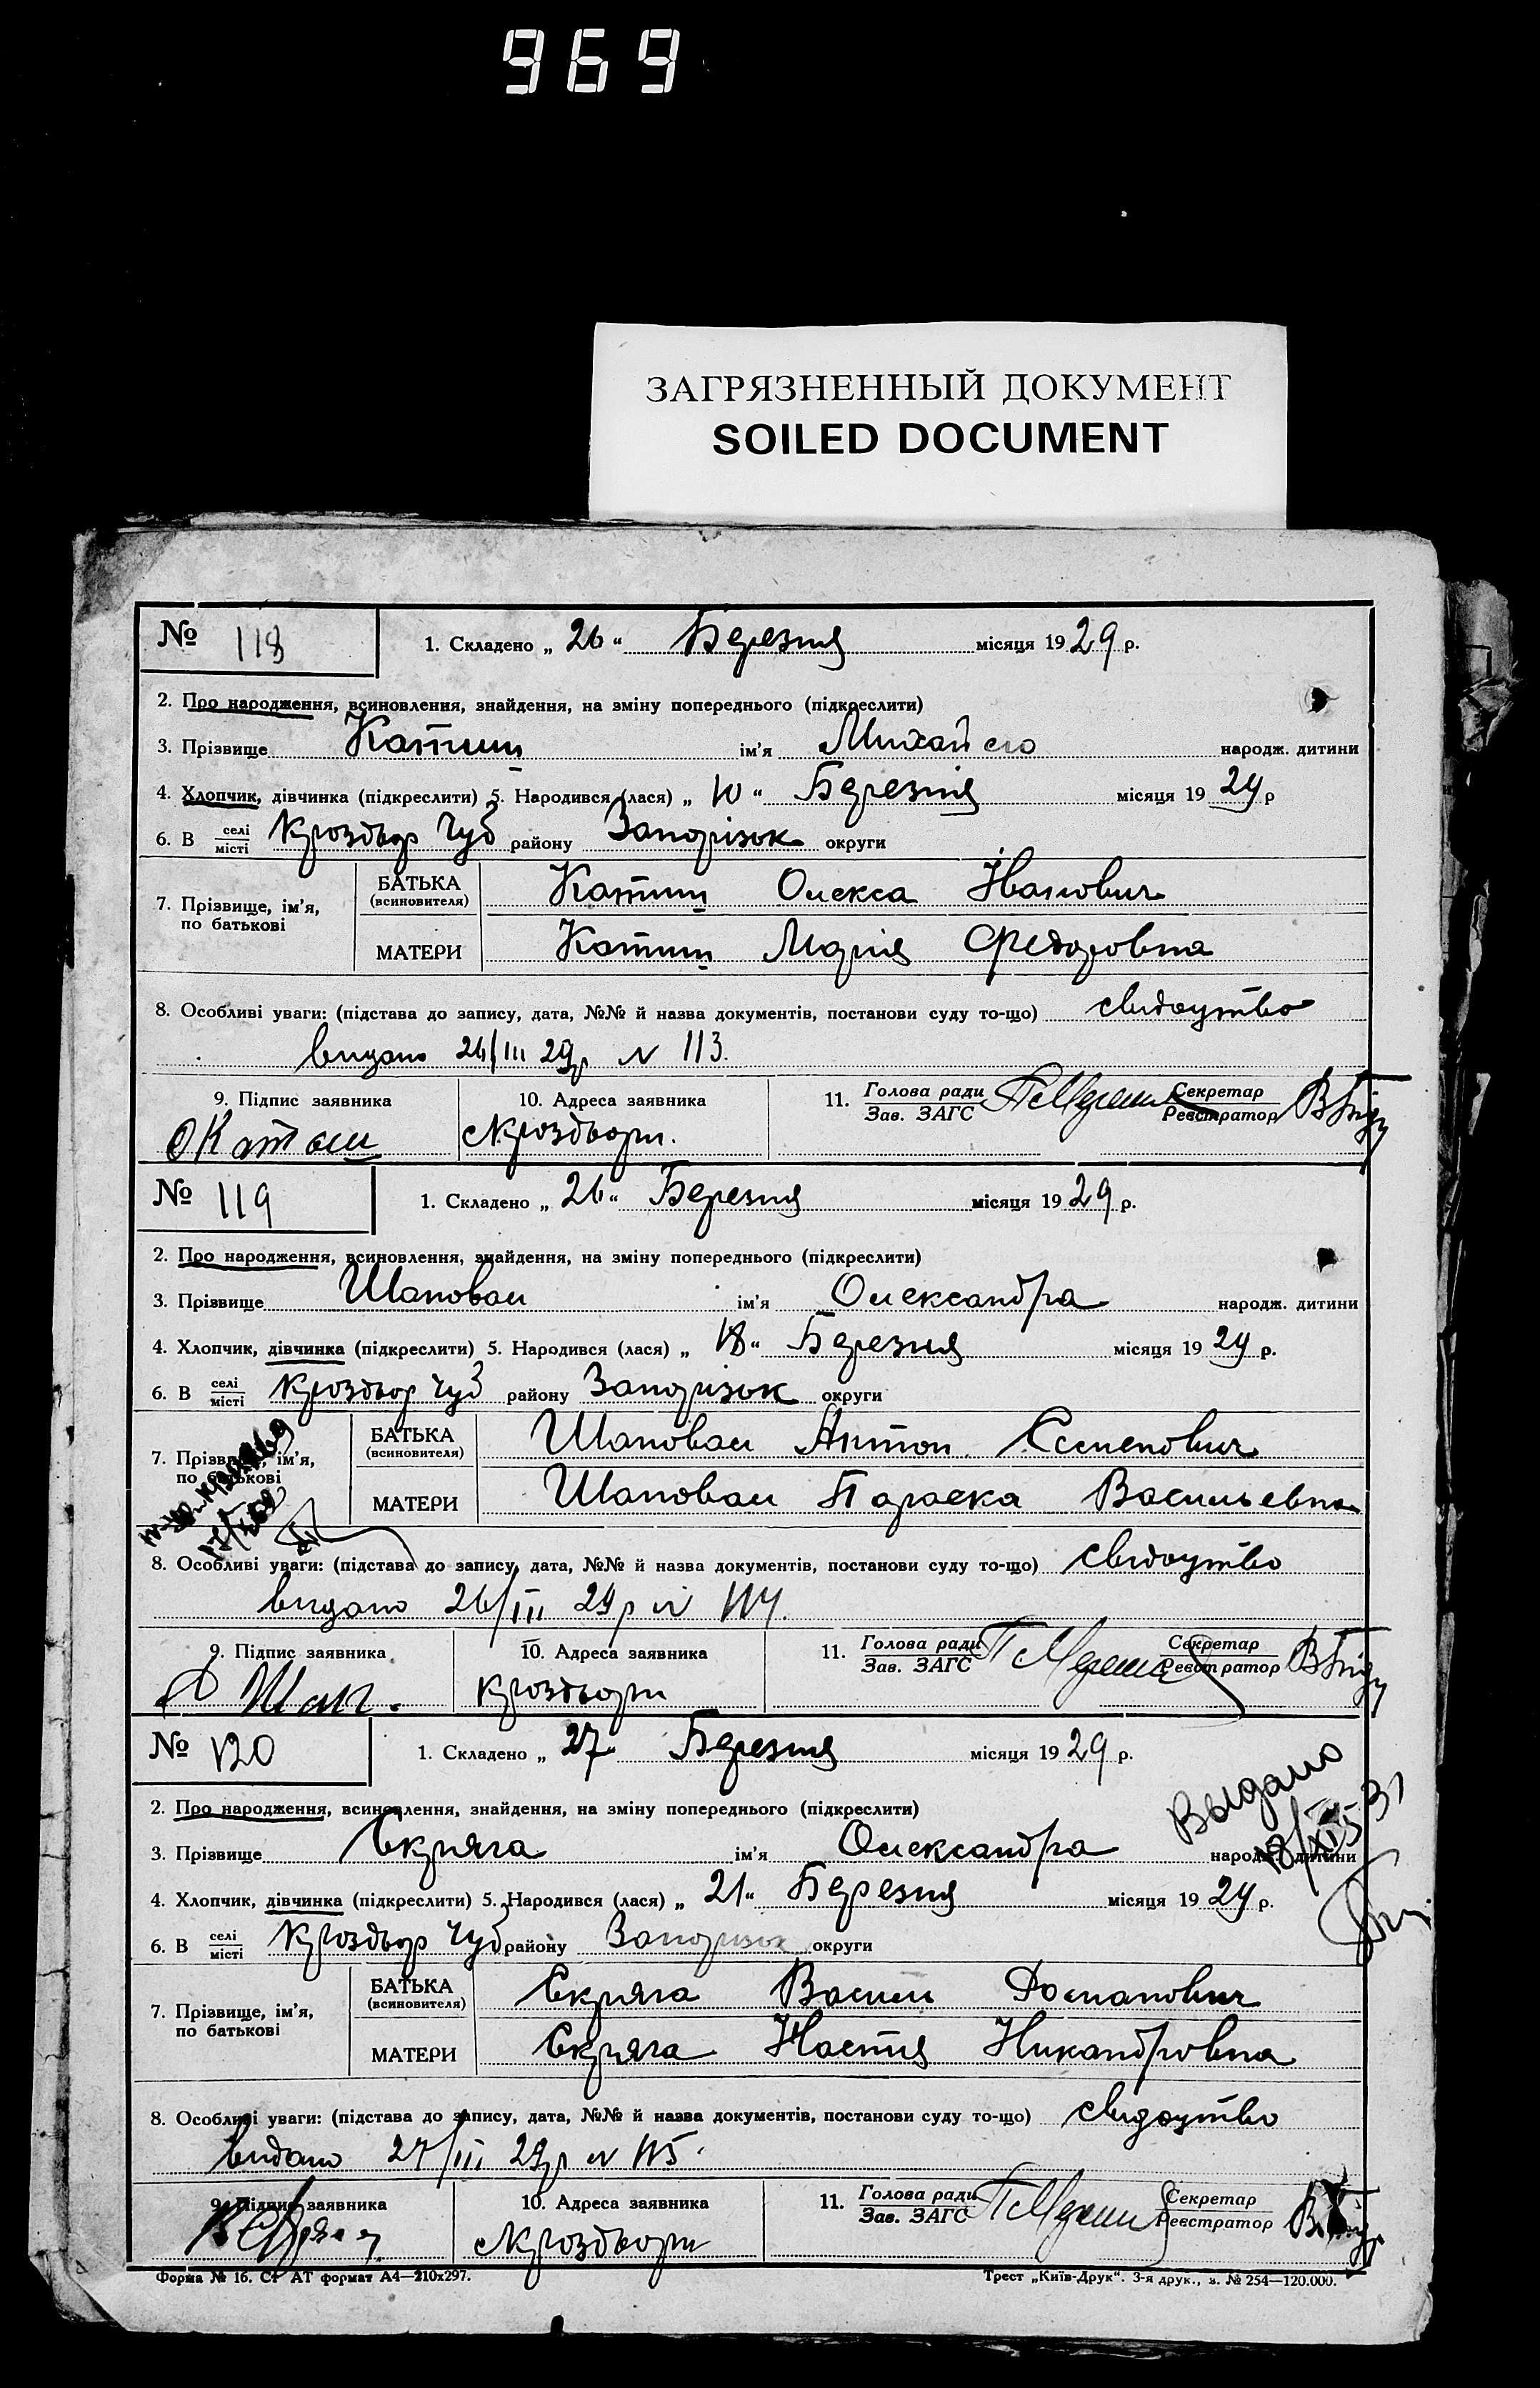 969
ЗАГРЯЗНЕННЫЙ ДОКУМЕНТ
SOILED DOCUMENT
№ 118
1. Складено „ 26 “ Березня місяця 1929 р.
2. Про народження, всиновлення, знайдення, на зміну попереднього (підкреслити)
3. Прізвище ім'я Михайло народж. дитини
4. Хлопчик, дівчинка (підкреслити) 5. Народився (лася) „ 10 “ Березня місяця 19 29 р
6. В селі місті Кроздвор Чуб району Запоріжж округи
7. Прізвище, ім'я, по батькові
БАТЬКА (всиновителя) Олекса Іванович
МАТЕРИ Марія Федоровна
8. Особливі уваги: (підстава до запису, дата, №№ й назва документів, постанови суду то-що) свидоцтво
видано 26/III 29р N 113.
9. Підпис заявника
10. Адреса заявника
11. Голова ради Зав. ЗАГС
Секретар Реєстратор
№ 119
1. Складено „ 26 “ Березня місяця 1929 р.
2. Про народження, всиновлення, знайдення, на зміну попереднього (підкреслити)
3. Прізвище Шаповал ім'я Олександра народж. дитини
4. Хлопчик, дівчинка (підкреслити) 5. Народився (лася) „ 18 “ Березня місяця 19 29 р.
6. В селі місті Кроздвор Чуб району Запоріжж округи
7. Прізвище, ім'я, по батькові
БАТЬКА (всиновителя) Шаповал Антон Семенович
МАТЕРИ Шаповал Параска Васильевна
8. Особливі уваги: (підстава до запису, дата, №№ й назва документів, постанови суду то-що) свидоцтво
видано 26/III 29р N 114.
9. Підпис заявника
А Шап.
10. Адреса заявника
11. Голова ради Зав. ЗАГС
Секретар Реєстратор
№ 120
1. Складено „ 27 Березня місяця 1929 р.
Выдано
2. Про народження, всиновлення, знайдення, на зміну попереднього (підкреслити)
3. Прізвище Скряга ім'я Олександра народж. дитини
4. Хлопчик, дівчинка (підкреслити) 5. Народився (лася) „ 21 “ Березня місяця 19 29 р.
6. В селі місті Кроздвор Чуб району Запоріжж округи
7. Прізвище, ім'я, по батькові
БАТЬКА (всиновителя) Скряга Василь
МАТЕРИ Скряга Настя Никандровна
8. Особливі уваги: (підстава до запису, дата, №№ й назва документів, постанови суду то-що) свидоцтво
видано 27/III 29р N 115.
9. Підпис заявника
10. Адреса заявника
11. Голова ради Зав. ЗАГС
Секретар Реєстратор
Форма № 16. Ст АТ формат А4—210х297.
Трест „Київ-Друк“. 3-я друк., з. № 254—120.000.